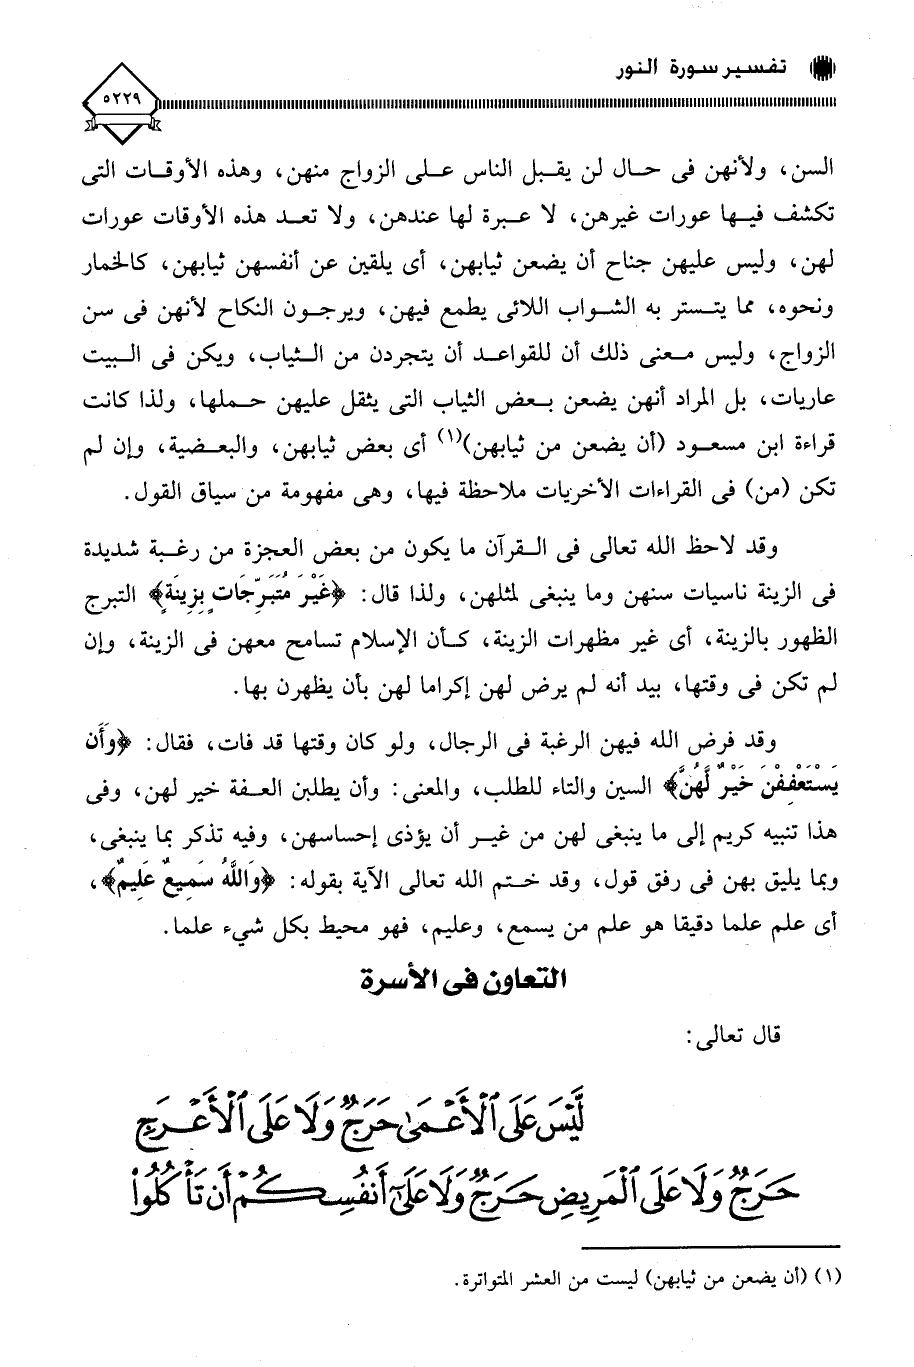 تفسير سورة النور
٥٢٢٩
السن، ولأنهن فى حال لن يقبل الناس على الزواج منهن، وهذه الأوقات التى
تكشف فيها عورات غيرهن، لا عبرة لها عندهن، ولا تعد هذه الأوقات عورات
لهن، وليس عليهن جناح أن يضعن ثيابهن، أى يلقين عن أنفسهن ثيابهن، كالخمار
ونحوه، مما يتستر به الشواب اللائى يطمع فيهن، ويرجون النكاح لأنهن فى سن
الزواج، وليس معنى ذلك أن للقواعد أن يتجردن من الثياب، ويكن فى البيت
عاريات، بل المراد أنهن يضعن بعض الثياب التى يثقل عليهن حملها، ولذا كانت
قراءة ابن مسعود (أن يضعن من ثيابهن)(١) أى بعض ثيابهن، والبعضية، وإن لم
تكن (من) فى القراءات الأخريات ملاحظة فيها، وهى مفهومة من سياق القول.
وقد لاحظ الله تعالى فى القرآن ما يكون من بعض العجزة من رغبة شديدة
فى الزينة ناسيات سنهن وما ينبغى لمثلهن، ولذا قال: ﴿غَيْرَ مُتَبَرِّجَاتٍ بِزِينَةٍ﴾ التبرج
الظهور بالزينة، أى غير مظهرات الزينة، كأن الإسلام تسامح معهن فى الزينة، وإن
لم تكن فى وقتها، بيد أنه لم يرض لهن إكراما لهن بأن يظهرن بها.
وقد فرض الله فيهن الرغبة فى الرجال، ولو كان وقتها قد فات، فقال: ﴿وَأَن
يَسْتَعْفِفْنَ خَيْرٌ لَّهُنَّ﴾ السين والتاء للطلب، والمعنى: وأن يطلبن العفة خير لهن، وفى
هذا تنبيه كريم إلى ما ينبغى لهن من غير أن يؤذى إحساسهن، وفيه تذكر بما ينبغى،
وبما يليق بهن فى رفق قول، وقد ختم الله تعالى الآية بقوله: ﴿وَاللَّهُ سَمِيعٌ عَلِيمٌ﴾،
أى علم علما دقيقا هو علم من يسمع، وعليم، فهو محيط بكل شيء علما.
التعاون فى الأسرة
قال تعالى:
لَّيْسَ عَلَى ٱلْأَعْمَىٰ حَرَجٌ وَلَا عَلَى ٱلْأَعْرَجِ
حَرَجٌ وَلَا عَلَى ٱلْمَرِيضِ حَرَجٌ وَلَا عَلَىٰٓ أَنفُسِكُمْ أَن تَأْكُلُوا۟
(١) (أن يضعن من ثيابهن) ليست من العشر المتواترة.